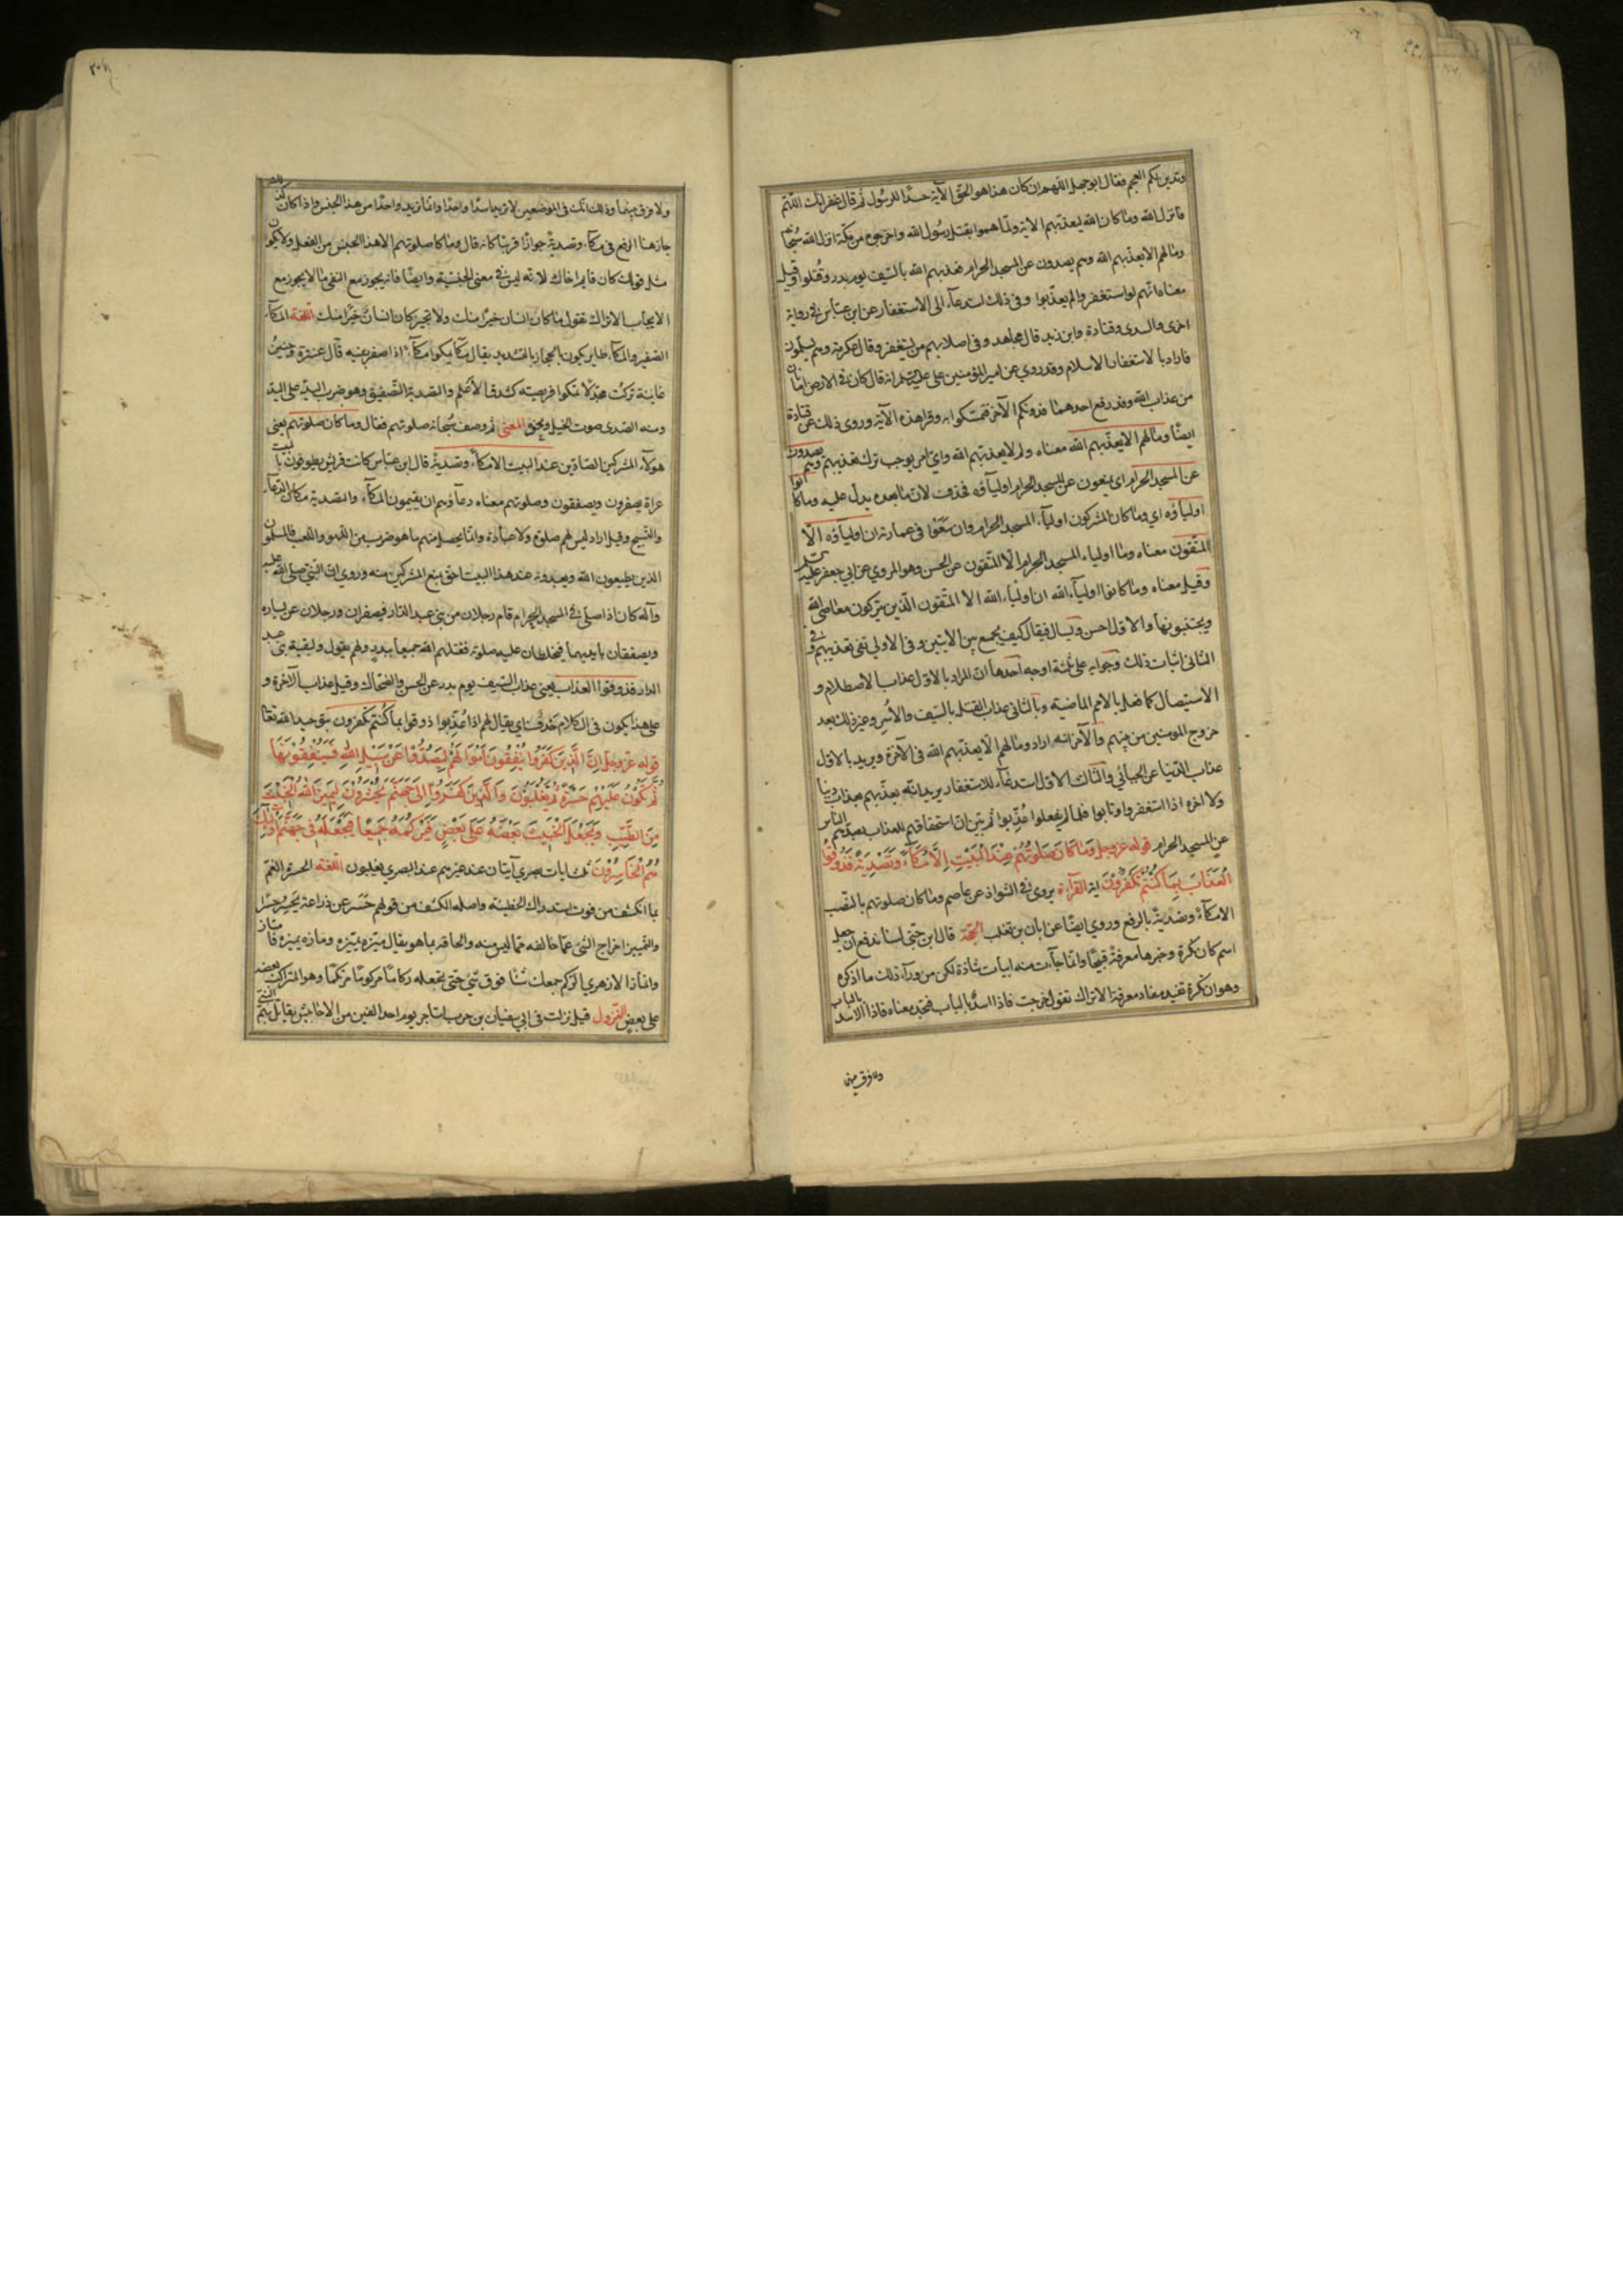 وتدين لكم العجم فقال ابو جهل اللهم ان كان هذا هو الحق الآية حسدًا للرسول ثم قال غفرانك اللهم
فانزل الله وما كان الله ليعذبهم الاية ولما هموا بقتل رسول الله واخرجوه من مكة انزل الله سبحانه
وما لهم الا يعذبهم الله وهم يصدون عن المسجد الحرام فعذبهم الله بالسيف يوم بدر وقتلوا وقيل
معناه انهم لو استغفروا لم يعذبوا وفي ذلك استدعاء الى الاستغفار عن ابن عباس في رواية
اخرى والسدى وقتادة وابن زيد قال مجاهد وفي اصلابهم من يستغفر وقال عكرمة وهم يسلمون
فاراد بالاستغفار الاسلام وقد روي عن امير المؤمنين علي عليه السلم انه قال كان في الارض امانان
من عذاب الله وقد رفع احدهما فدونكم الآخر فتمسكوا به وقرا هذه الآية وروى ذلك عن قتادة
ايضًا وما لهم الا يعذبهم الله معناه ولم لا يعذبهم الله واي امر يوجب ترك تعذيبهم وهم يصدون
عن المسجد الحرام اي يمنعون عن المسجد الحرام اولياؤه فحذف لان ما بعده يدل عليه وما كانوا
اولياؤه اي وما كان المشركون اولياء المسجد الحرام وان سعوا في عمارته ان اولياؤه الا
المتقون معناه وما اولياء المسجد الحرام الا المتقون عن الحسن وهو المروي عن ابي جعفر عليه السلم
وقيل معناه وما كانوا اولياء الله ان اولياء الله الا المتقون الذين يتركون معاصي الله
ويجتنبونها والاول احسن ويسال فيقال كيف يجمع بين الايتين وفي الاولى نفى تعذيبهم وفي
الثانى اثبات ذلك وجوابه على ثلثة اوجه احدها ان المراد بالاول عذاب الاصطلام و
الاستيصال كما فعل بالامم الماضية وبالثانى عذاب القتل بالسيف والاسر وغير ذلك بعد
خروج المومنين من بينهم والآخر انه اراد وما لهم الا يعذبهم الله في الآخرة ويريد بالاول
عذاب الدنيا عن الجبائي والثالث ان الاول استدعاء للاستغفار يريد انه لا يعذبهم بعذاب دنيا
ولا اخرة اذا استغفروا وتابوا فلما لم يفعلوا عذبوا ثم بين ان استحقاقهم للعذاب بصدهم الناس
عن المسجد الحرام قوله عز وجل وَمَا كَانَ صَلٰوتُهُمْ عِنْدَ الْبَيْتِ اِلَّا مُكَاءً وَتَصْدِيَةً فَذُوقُوا
الْعَذَابَ بِمَا كُنْتُمْ تَكْفُرُونَ اية القرآءة يروى في الشواذ عن عاصم وما كان صلوتهم بالنصب
الا مكآءٌ وتصديةٌ بالرفع وروي ايضًا عن ابان بن تغلب الحجة قال ابن جنى لسنا ندفع ان جعل
اسم كان نكرة وخبرها معرفة قبيحًا وانما جآءت منه ابيات شاذة لكن من ورآء ذلك ما اذكره
وهو ان نكرة تفيد مفاد معرفته الا تراك تقول خرجت فاذا اسد بالباب فتجد معناه فاذا الاسد بالباب
ولا فرق بينهما
ولا فرق بينهما وذلك انك في الموضعين لا تريد اسدًا واحدًا وانما تريد واحدًا من هذا الجنس واذا كان كذلك
جاز هنا الرفع في مكآء وتصدية جوازًا قريبًا كانه قال وما كان صلوتهم الا هذا الجنس من الفعل ولا يكون
مثل قولك كان قايم اخاك لانه ليس في معنى الجنسية وايضًا فانه يجوز مع النفى ما لا يجوز مع
الايجاب الا تراك تقول ما كان انسان خيرًا منك ولا تجيز كان انسان خيرًا منك اللغة المكآء
الصفير والمكآء طاير يكون بالحجاز بالتشديد يقال مكا يمكوا مكآءً اذا صفر بفيه قال عنترة وحليل
غانية تركت مجدلًا تمكوا فريصته كشدق الاعلم والتصدية التصفيق وهو ضرب اليد على اليد
ومنه الصدى صوت الجبل ونحوه المعنى ثم وصف سبحانه صلوتهم فقال وما كان صلوتهم يعنى
هولآء المشركين الصادين عند البيت الا مكآء وتصدية قال ابن عباس كانت قريش يطوفون بالبيت
عراة يصفرون ويصفقون وصلوتهم معناه دعآؤهم ان يقيمون المكآء والتصدية مكان الدعآء
والتسبيح وقيل اراد ليس لهم صلوة ولا عبادة وانما يحصل منهم ما هو ضرب من اللهو واللعب فالمسلمون
الذين يطيعون الله ويعبدونه عند هذا البيت احق بمنع المشركين منه وروي ان النبي صلى الله عليه
وآله كان اذا صلى في المسجد الحرام قام رجلان من بني عبد الدار فيصفران ورجلان عن يساره
ويصفقان بايديهما فيخلطان عليه صلوته فقتلهم الله جميعا ببدر ولهم يقول ولبقية بنى عبد
الدار فذوقوا العذاب يعنى عذاب السيف يوم بدر عن الحسن والضحاك وقيل عذاب الآخرة و
على هذا يكون في الكلام حذف اي يقال لهم اذا عُذِّبوا ذوقوا بما كنتم تكفرون بتوحيد الله تعالى
قوله عز وجل اِنَّ الَّذِينَ كَفَرُوا يُنْفِقُونَ اَمْوَالَهُمْ لِيَصُدُّوا عَنْ سَبِيلِ اللهِ فَسَيُنْفِقُونَهَا
ثُمَّ تَكُونُ عَلَيْهِمْ حَسْرَةً ثُمَّ يُغْلَبُونَ وَالَّذِينَ كَفَرُوا اِلٰى جَهَنَّمَ يُحْشَرُونَ لِيَمِيزَ اللهُ الْخَبِيثَ
مِنَ الطَّيِّبِ وَيَجْعَلَ الْخَبِيثَ بَعْضَهُ عَلٰى بَعْضٍ فَيَرْكُمَهُ جَمِيعًا فَيَجْعَلَهُ فِى جَهَنَّمَ اُولٰئِكَ
هُمُ الْخَاسِرُونَ ثلث ايات بصري آيتان عند غيرهم عند البصري يغلبون اللغة الحسرة الغم
بما انكشف من فوت استدراك الخطيئة واصله الكشف من قولهم حسر عن ذراعه يحسر حسرًا
والتمييز اخراج الشئ عما خالفه مما ليس منه والحاقه بما هو يقال ميزه يميزه ومازه يميزه فامتاز
وانماز الازهري الركم جمعك شئًا فوق شئ حتى تجعله ركامًا مركومًا وهو المتراكب بعضه
على بعض النزول قيل نزلت في ابي سفيان بن حرب استاجر يوم احد الفين من الاحابيش يقاتل بهم النبي